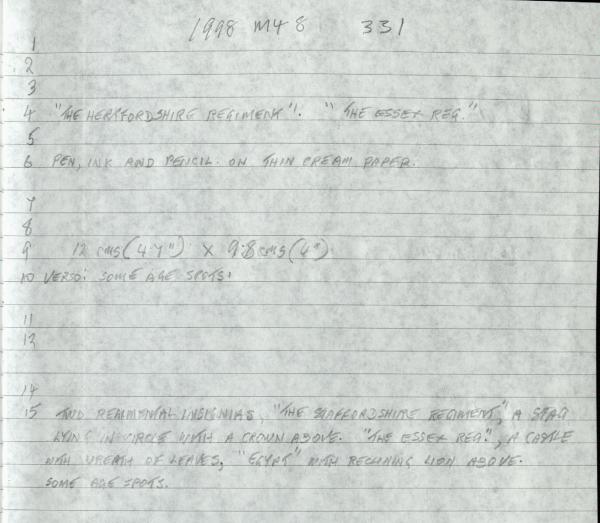 1998 M48 331
1
2
3
4 "THE HERTFORDSHIRE REGIMENT". "THE ESSEX REG."
5
6 PEN, INK AND PENCIL. ON THIN CREAM PAPER.
7
8
9 12 cms (4·7") X 9·8 cms (4")
10 VERSO: SOME AGE SPOTS.
11
12
14
15 TWO REGIMENTAL INSIGNIAS, "THE STAFFORDSHIRE REGIMENT", A STAG
LYING IN CIRCLE WITH A CROWN ABOVE. "THE ESSEX REG.", A CASTLE
WITH WREATH OF LEAVES, "EGYPT" WITH RECLINING LION ABOVE.
SOME AGE SPOTS.